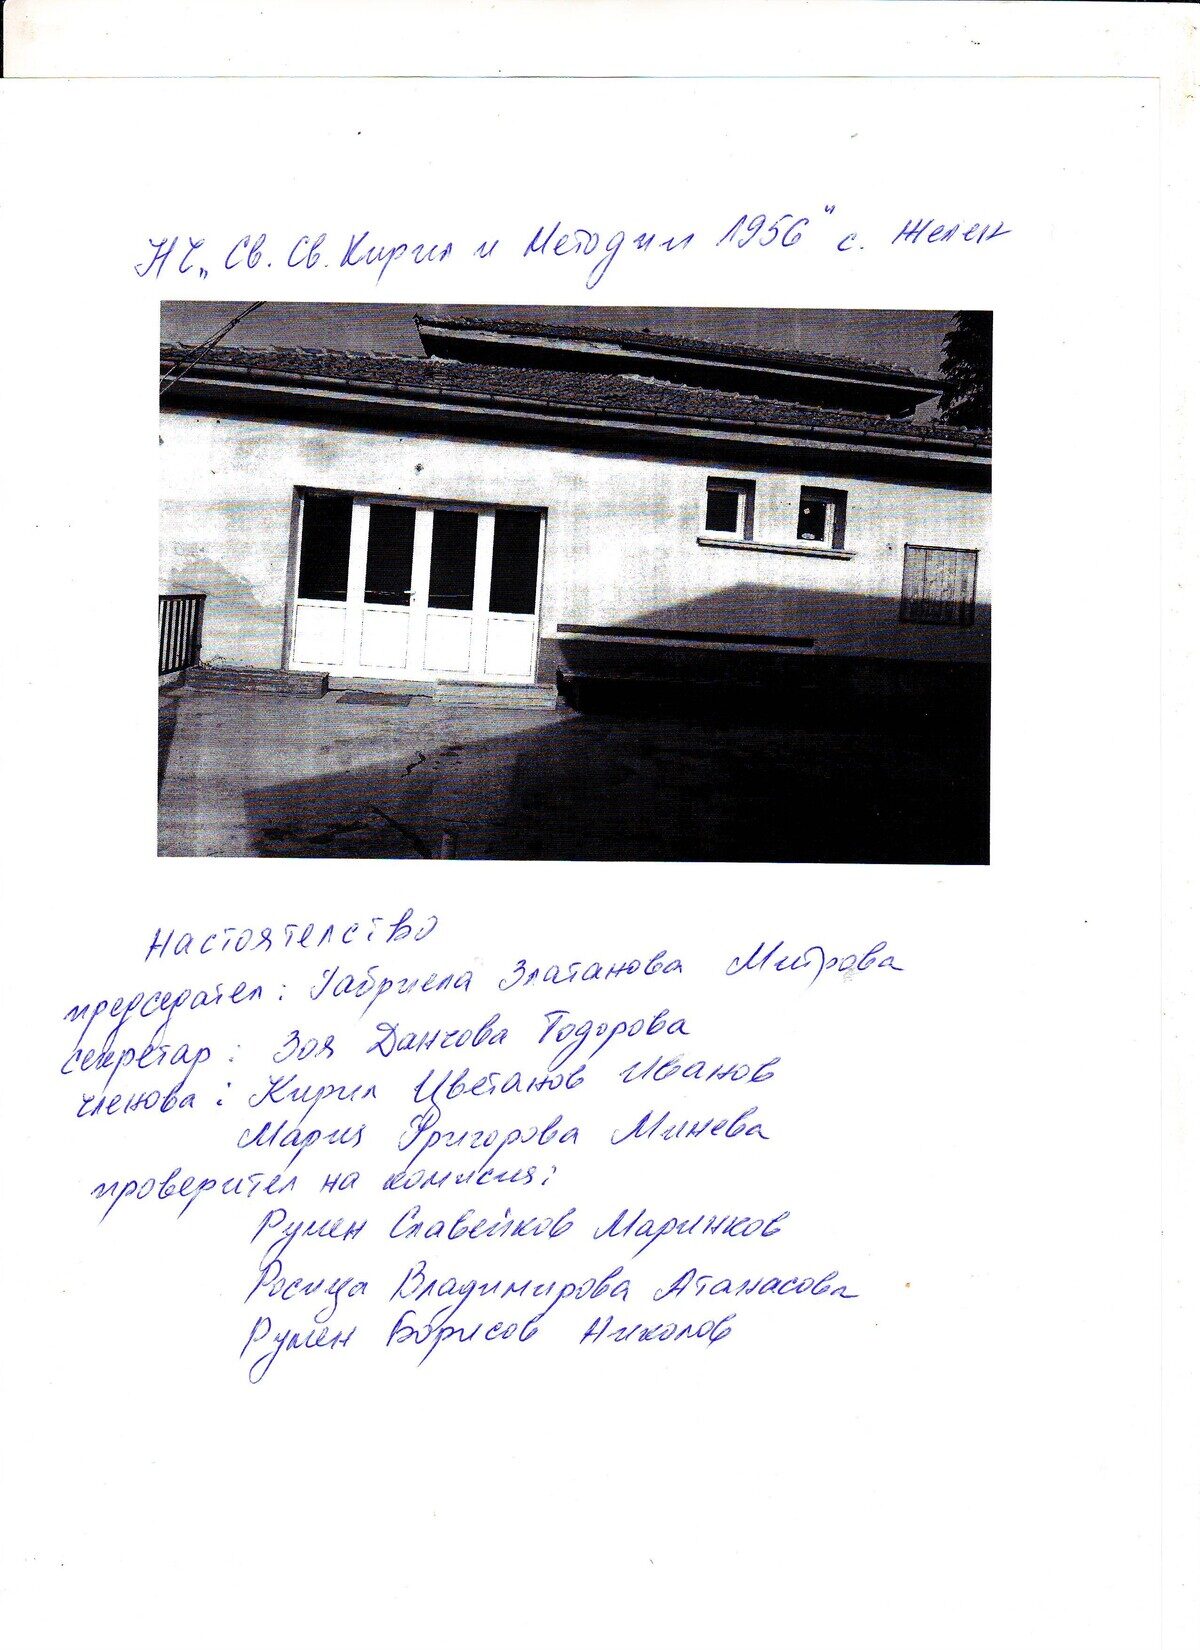 НЧ „Св. Св. Кирил и Методии 1956" с. Желен
Настоятелство
председател: Габриела Златанова Митрова
секретар: Зоя Данчова Тодорова
членова: Кирил Цветанов Иванов
Мария Григорова Минева
проверител на комисия:
Румен Славейков Маринков
Росица Владимирова Атанасова
Румен Борисов Николов